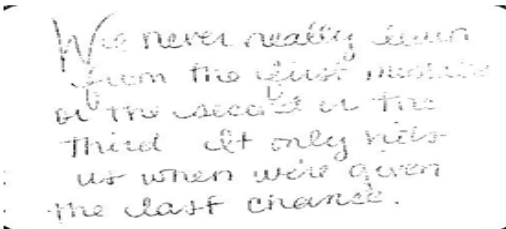 We never really learn
from the first mistake
or the second or the
third It only hits
us when we're given
the last chance.